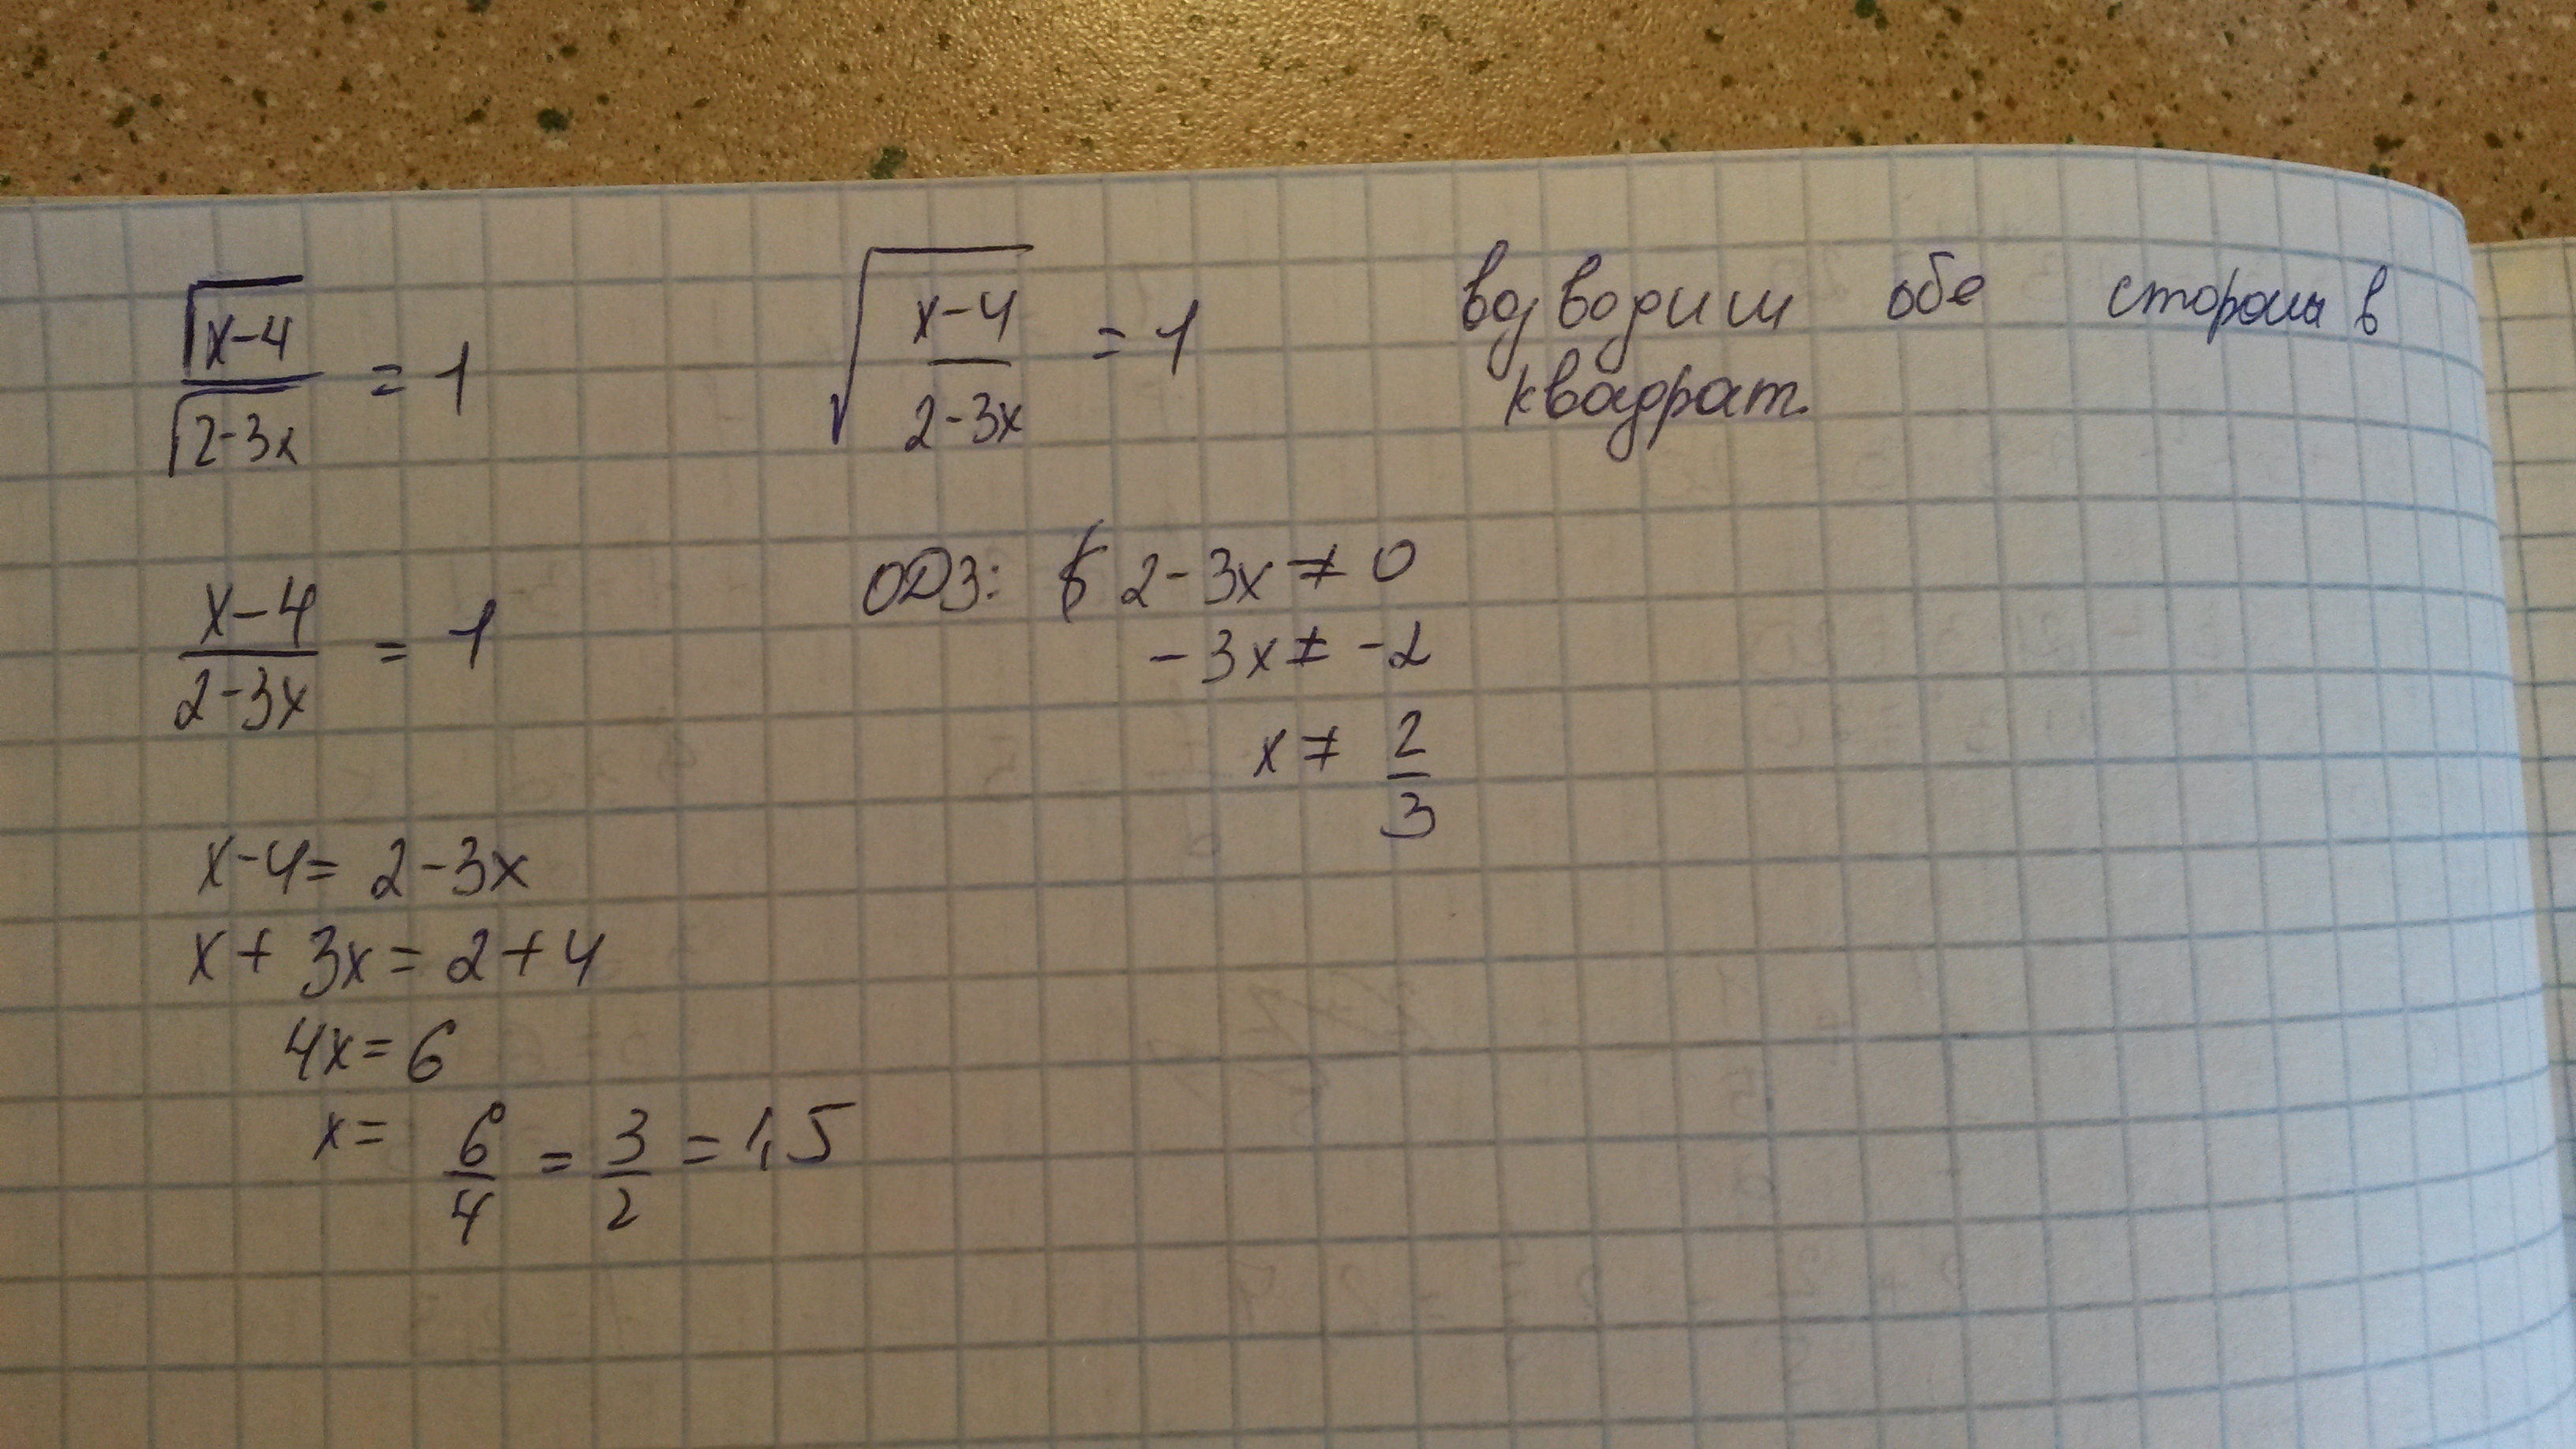 √x-4 / √2-3x = 1
√(x-4 / 2-3x) = 1
возводим обе стороны в
квадрат.
x-4 / 2-3x = 1
ОДЗ: 2-3x ≠ 0
-3x ≠ -2
x ≠ 2/3
x-4 = 2-3x
x + 3x = 2+4
4x = 6
x = 6/4 = 3/2 = 1,5